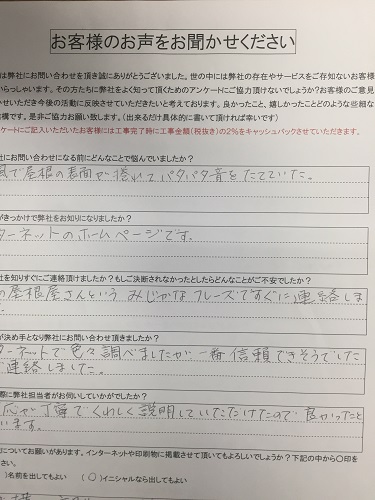 お客様のお声をお聞かせください
は弊社にお問い合わせを頂き誠にありがとうございました。世の中には弊社の存在やサービスをご存知ないお客様
いらっしゃいます。その方たちに弊社をよく知って頂くためのアンケートにご協力頂けないでしょうか?お客様のご意見
かせいただき今後の活動に反映させていただきたいと考えております。良かったこと、嬉しかったことどのような些細な
構です。是非ご協力お願い致します。(出来るだけ具体的に書いて頂ければ幸いです)
ケートにご記入いただいたお客様には工事完了時に工事金額(税抜き)の2%をキャッシュバックさせていただきます。
社にお問い合わせになる前にどんなことで悩んでいましたか?
風で屋根の表面が捲れてバタバタ音をたてていた。
がきっかけで弊社をお知りになりましたか?
ターネットのホームページです。
社を知りすぐにご連絡頂けましたか?もしご決断されなかったとしたらどんなことがご不安でしたか?
の屋根屋さんという みじかな フレーズですぐに連絡しま
た。
が決め手となり弊社にお問い合わせ頂きましたか?
ターネットで色々調べましたが、一番信頼できそうでした
連絡しました。
際に弊社担当者がお伺いしていかがでしたか?
応が丁寧でくわしく説明していただけたので、良かったと
います。
についてお願いがあります。インターネットや印刷物に掲載させて頂いてもよろしいでしょうか?下記の中から〇印を
さい。
)名前を出してもよい (〇)イニシャルなら出してもよい